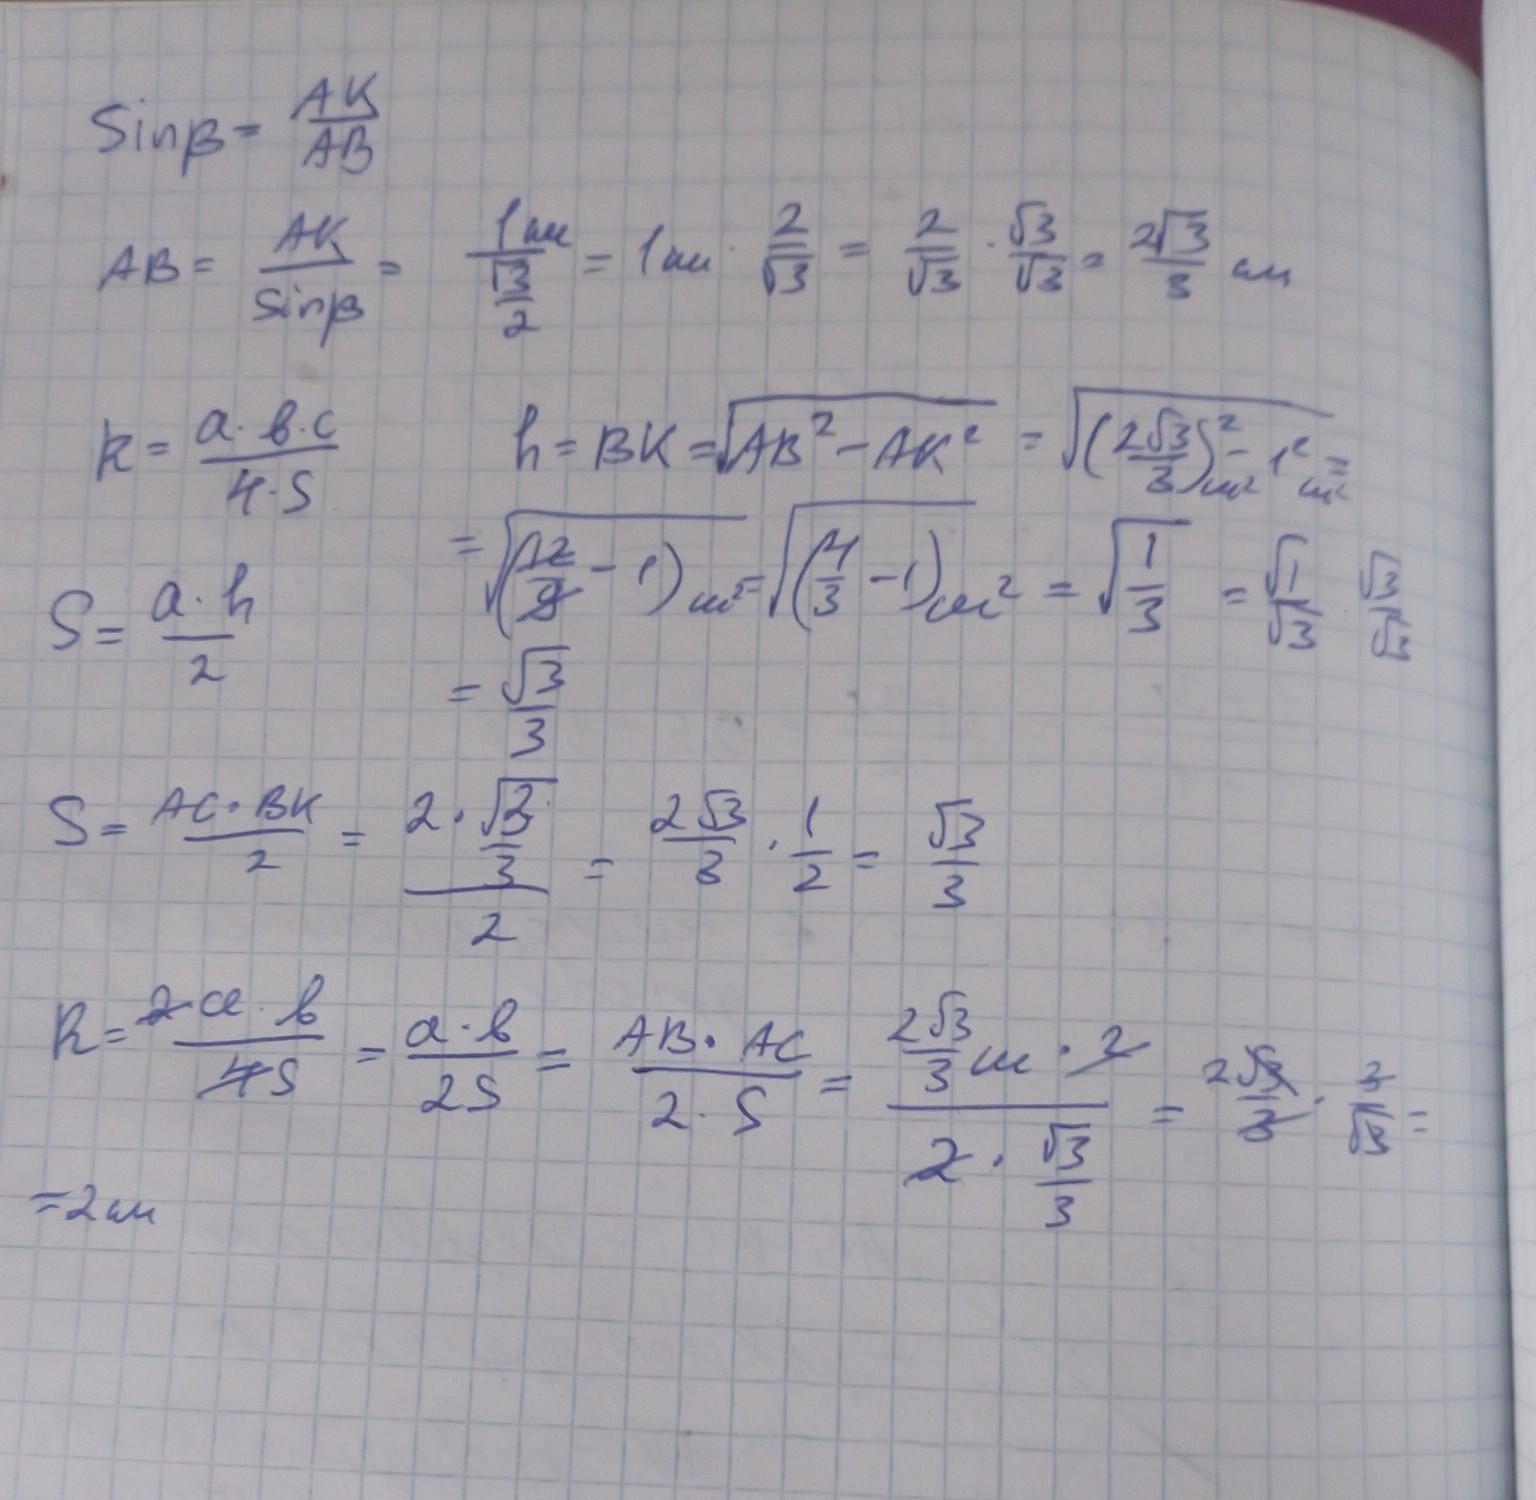 Sinβ = AK/AB
AB = AK/Sinβ = 1см/(√3/2) = 1см · 2/√3 = 2/√3 · √3/√3 = 2√3/3 см
R = a·b·c/4·S h = BK = √(AB² - AK²) = √((2√3/3)² см² - 1² см²) =
= √((12/9 - 1) см²) = √((4/3 - 1) см²) = √(1/3) = √1/√3 · √3/√3
S = a·h/2 = √3/3
S = AC·BK/2 = (2·√3/3)/2 = 2√3/3 · 1/2 = √3/3
R = 2a·b/4S = a·b/2S = AB·AC/2·S = (2√3/3 см · 2)/(2·√3/3) = 2√3/3 · 3/√3 =
= 2см